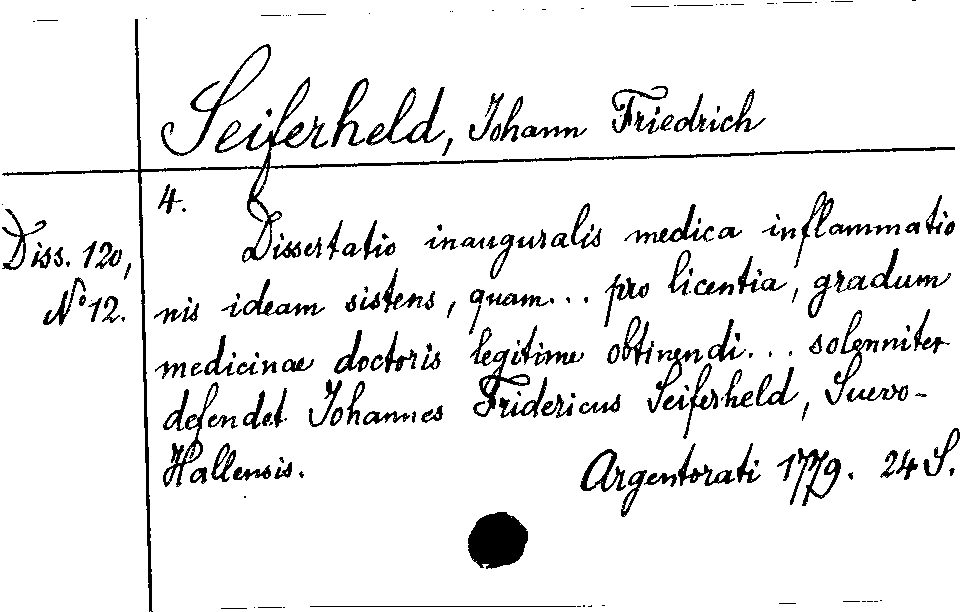 Seiferheld, Johann Friedrich
4.
Diss. 120,
No 12.
Dissertatio inauguralis medica inflammatio
nis ideam sistens, quam... pro licentia, gradum
medicinae doctoris legitime obtinendi... solenniter
defendet Johannes Fridericus Seiferheld, Suevo-
Hallensis.
Argentorati 1779. 24 S.